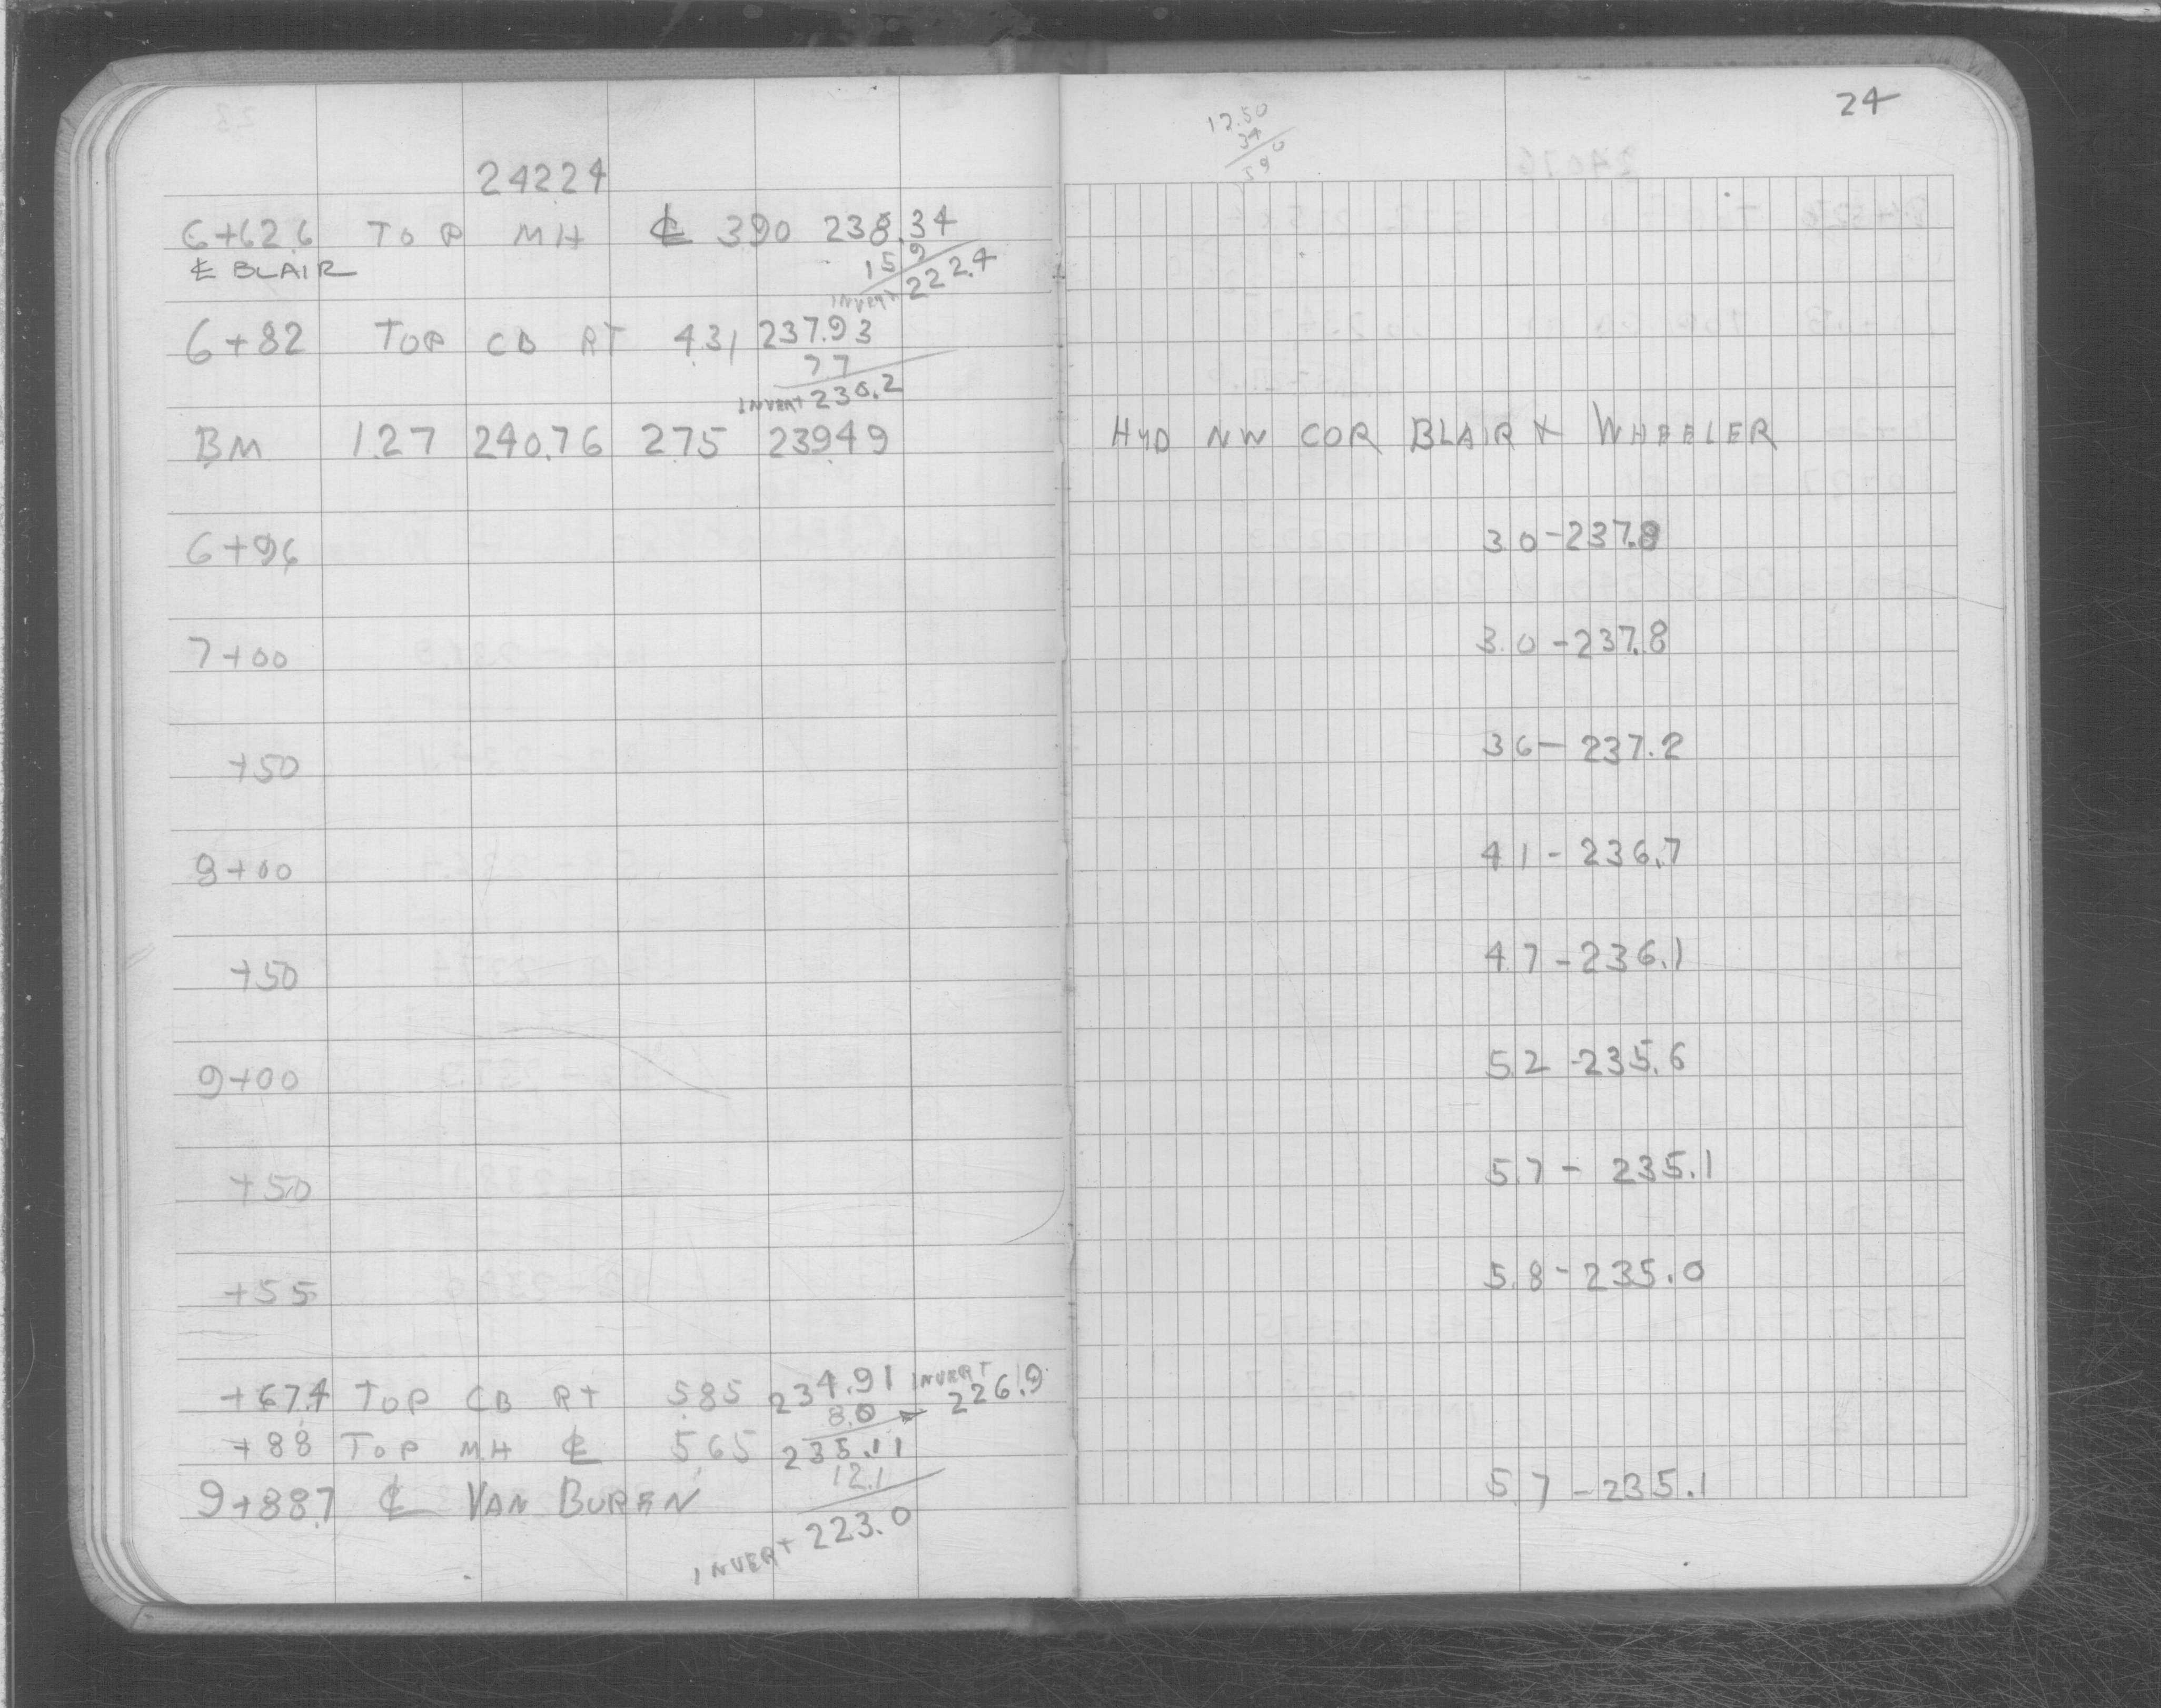 24
12.50
34
590
24224
6+62.6 TOP MH ℄ 3.90 238.34
℄ BLAIR 15.9
INVERT 222.4
6+82 TOP CB RT 4.31 237.93
7.7
INVERT 230.2
BM 1.27 240.76 2.75 239.49 HYD NW COR BLAIR & WHEELER
6+96 3.0-237.8
7+00 3.0-237.8
+50 3.6-237.2
8+00 4.1-236.7
+50 4.7-236.1
9+00 5.2-235.6
+50 5.7-235.1
+55 5.8-235.0
+67.4 TOP CB RT 5.85 234.91 INVERT
8.0 → 226.9
+88 TOP MH ℄ 5.65 235.11
12.1
9+88.7 ℄ VAN BUREN 5.7-235.1
INVERT 223.0